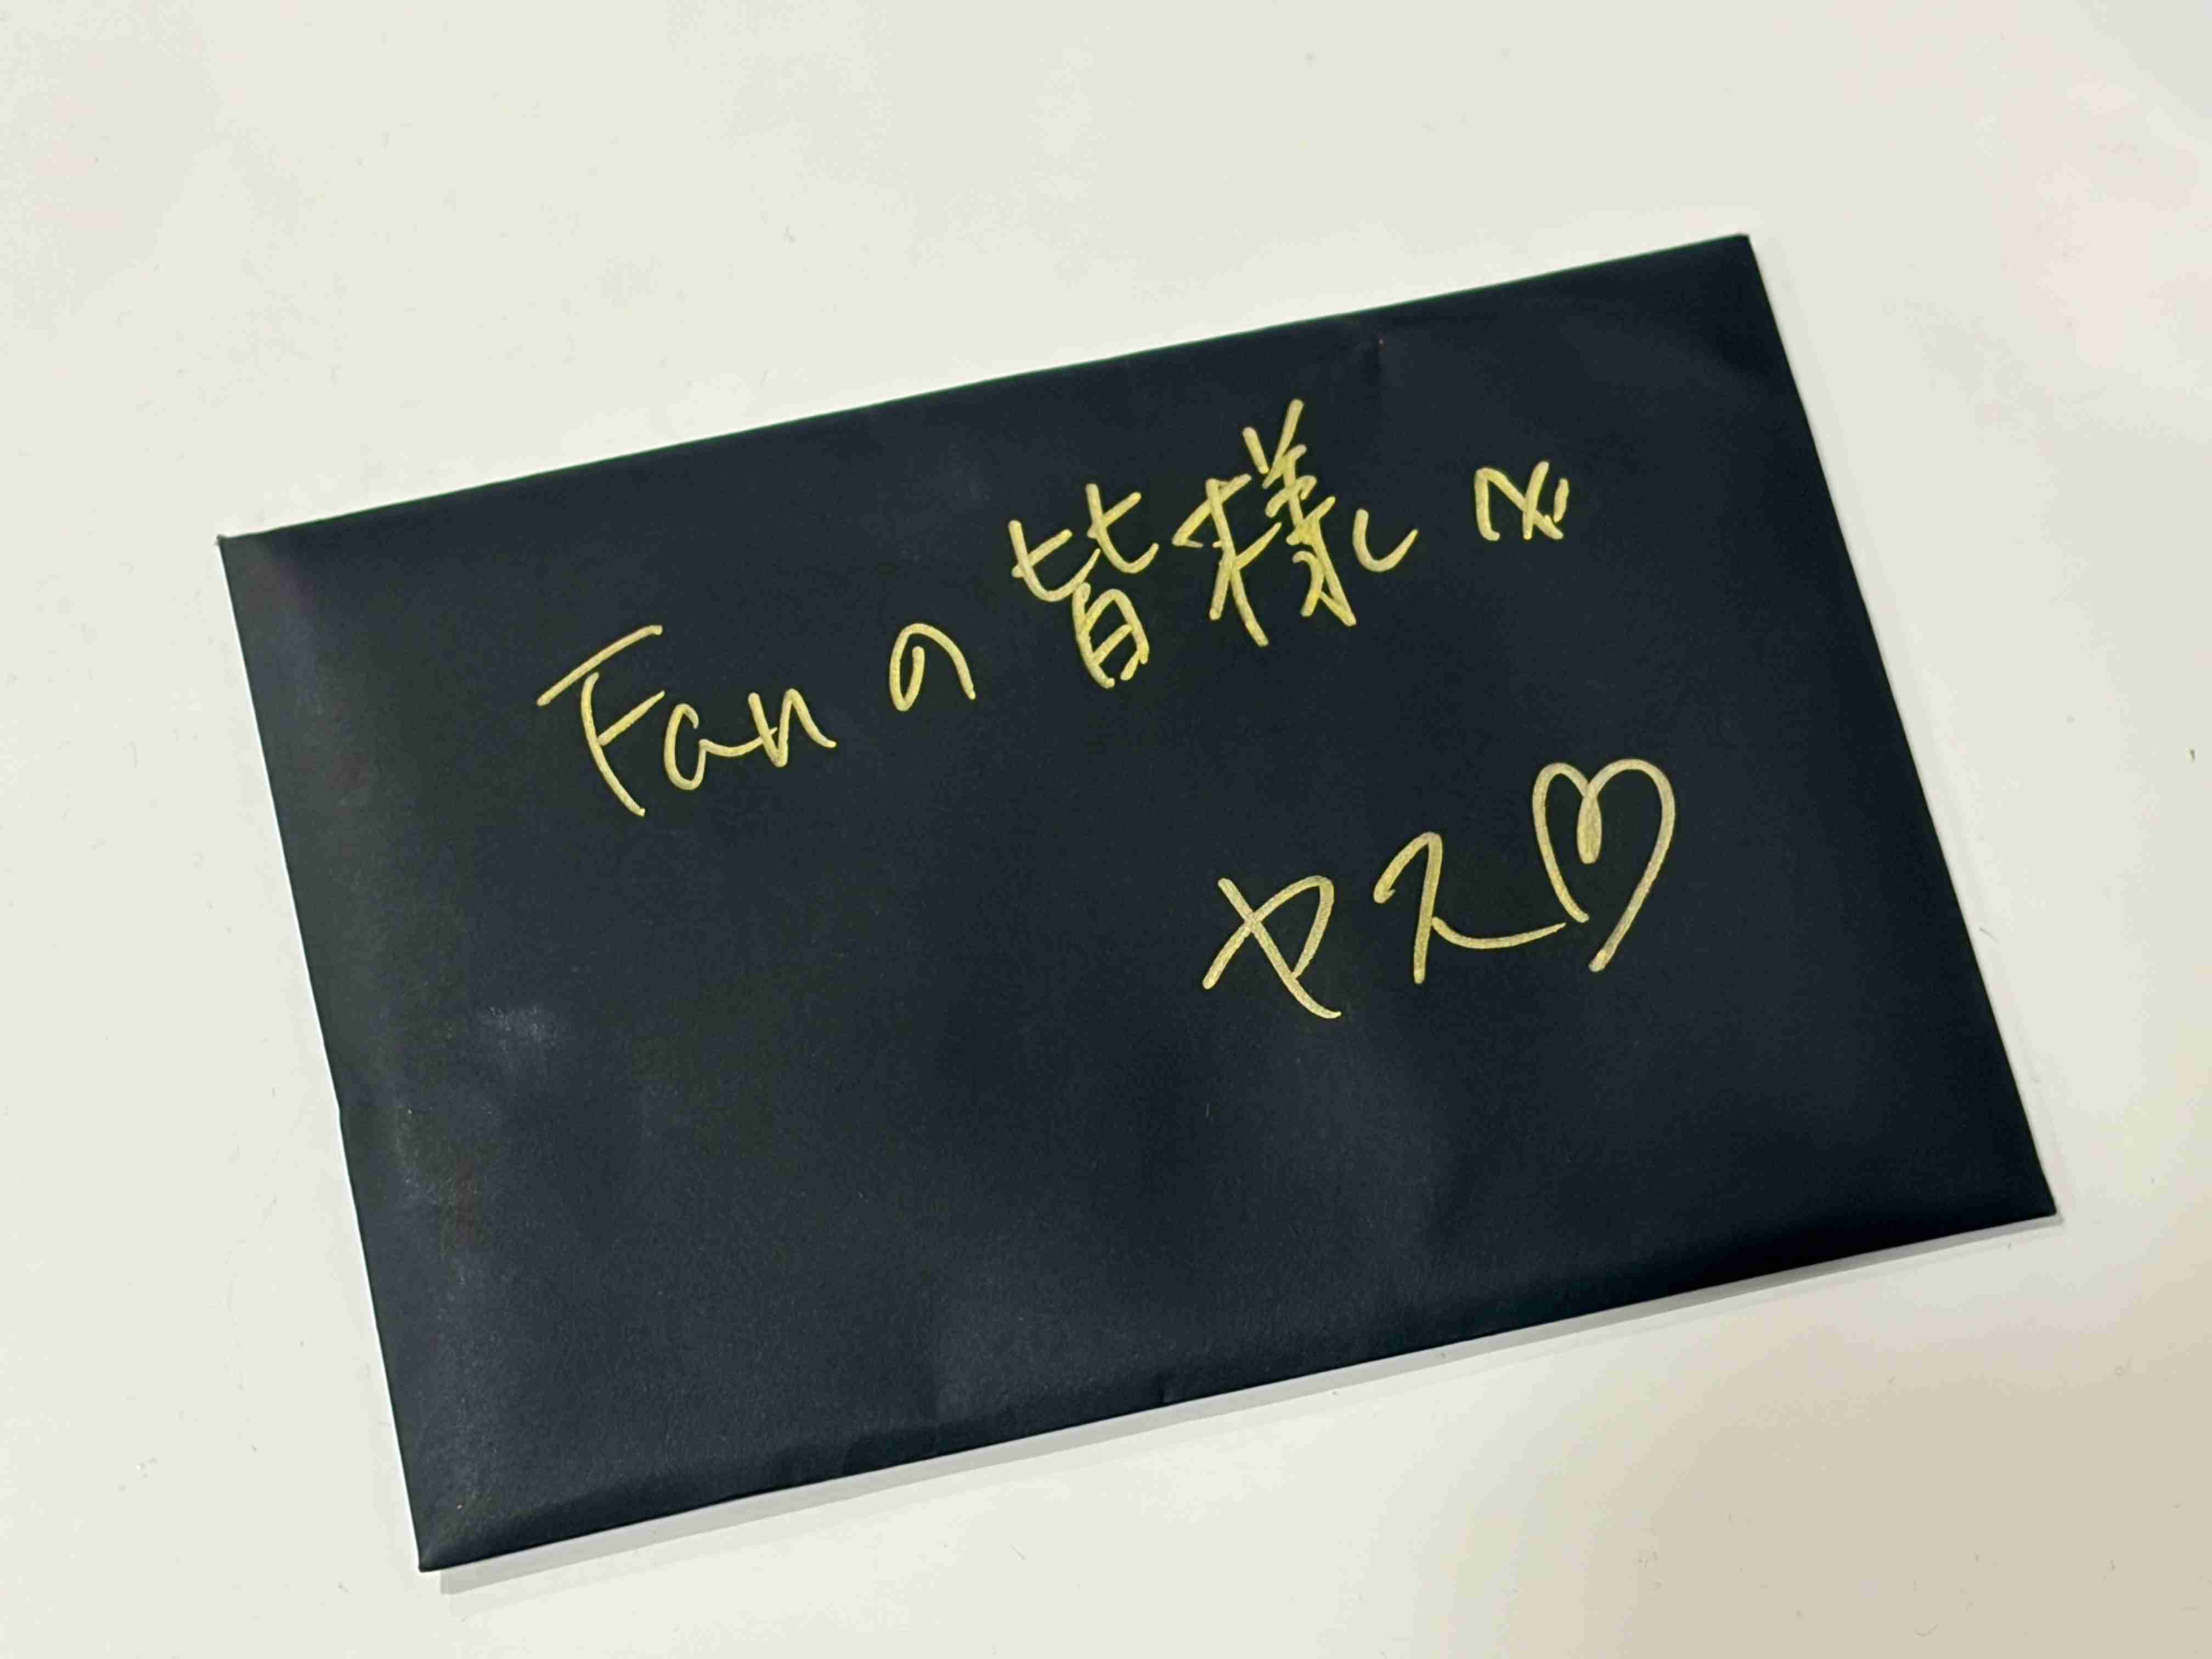 Fanの皆様へ
ヤス♡